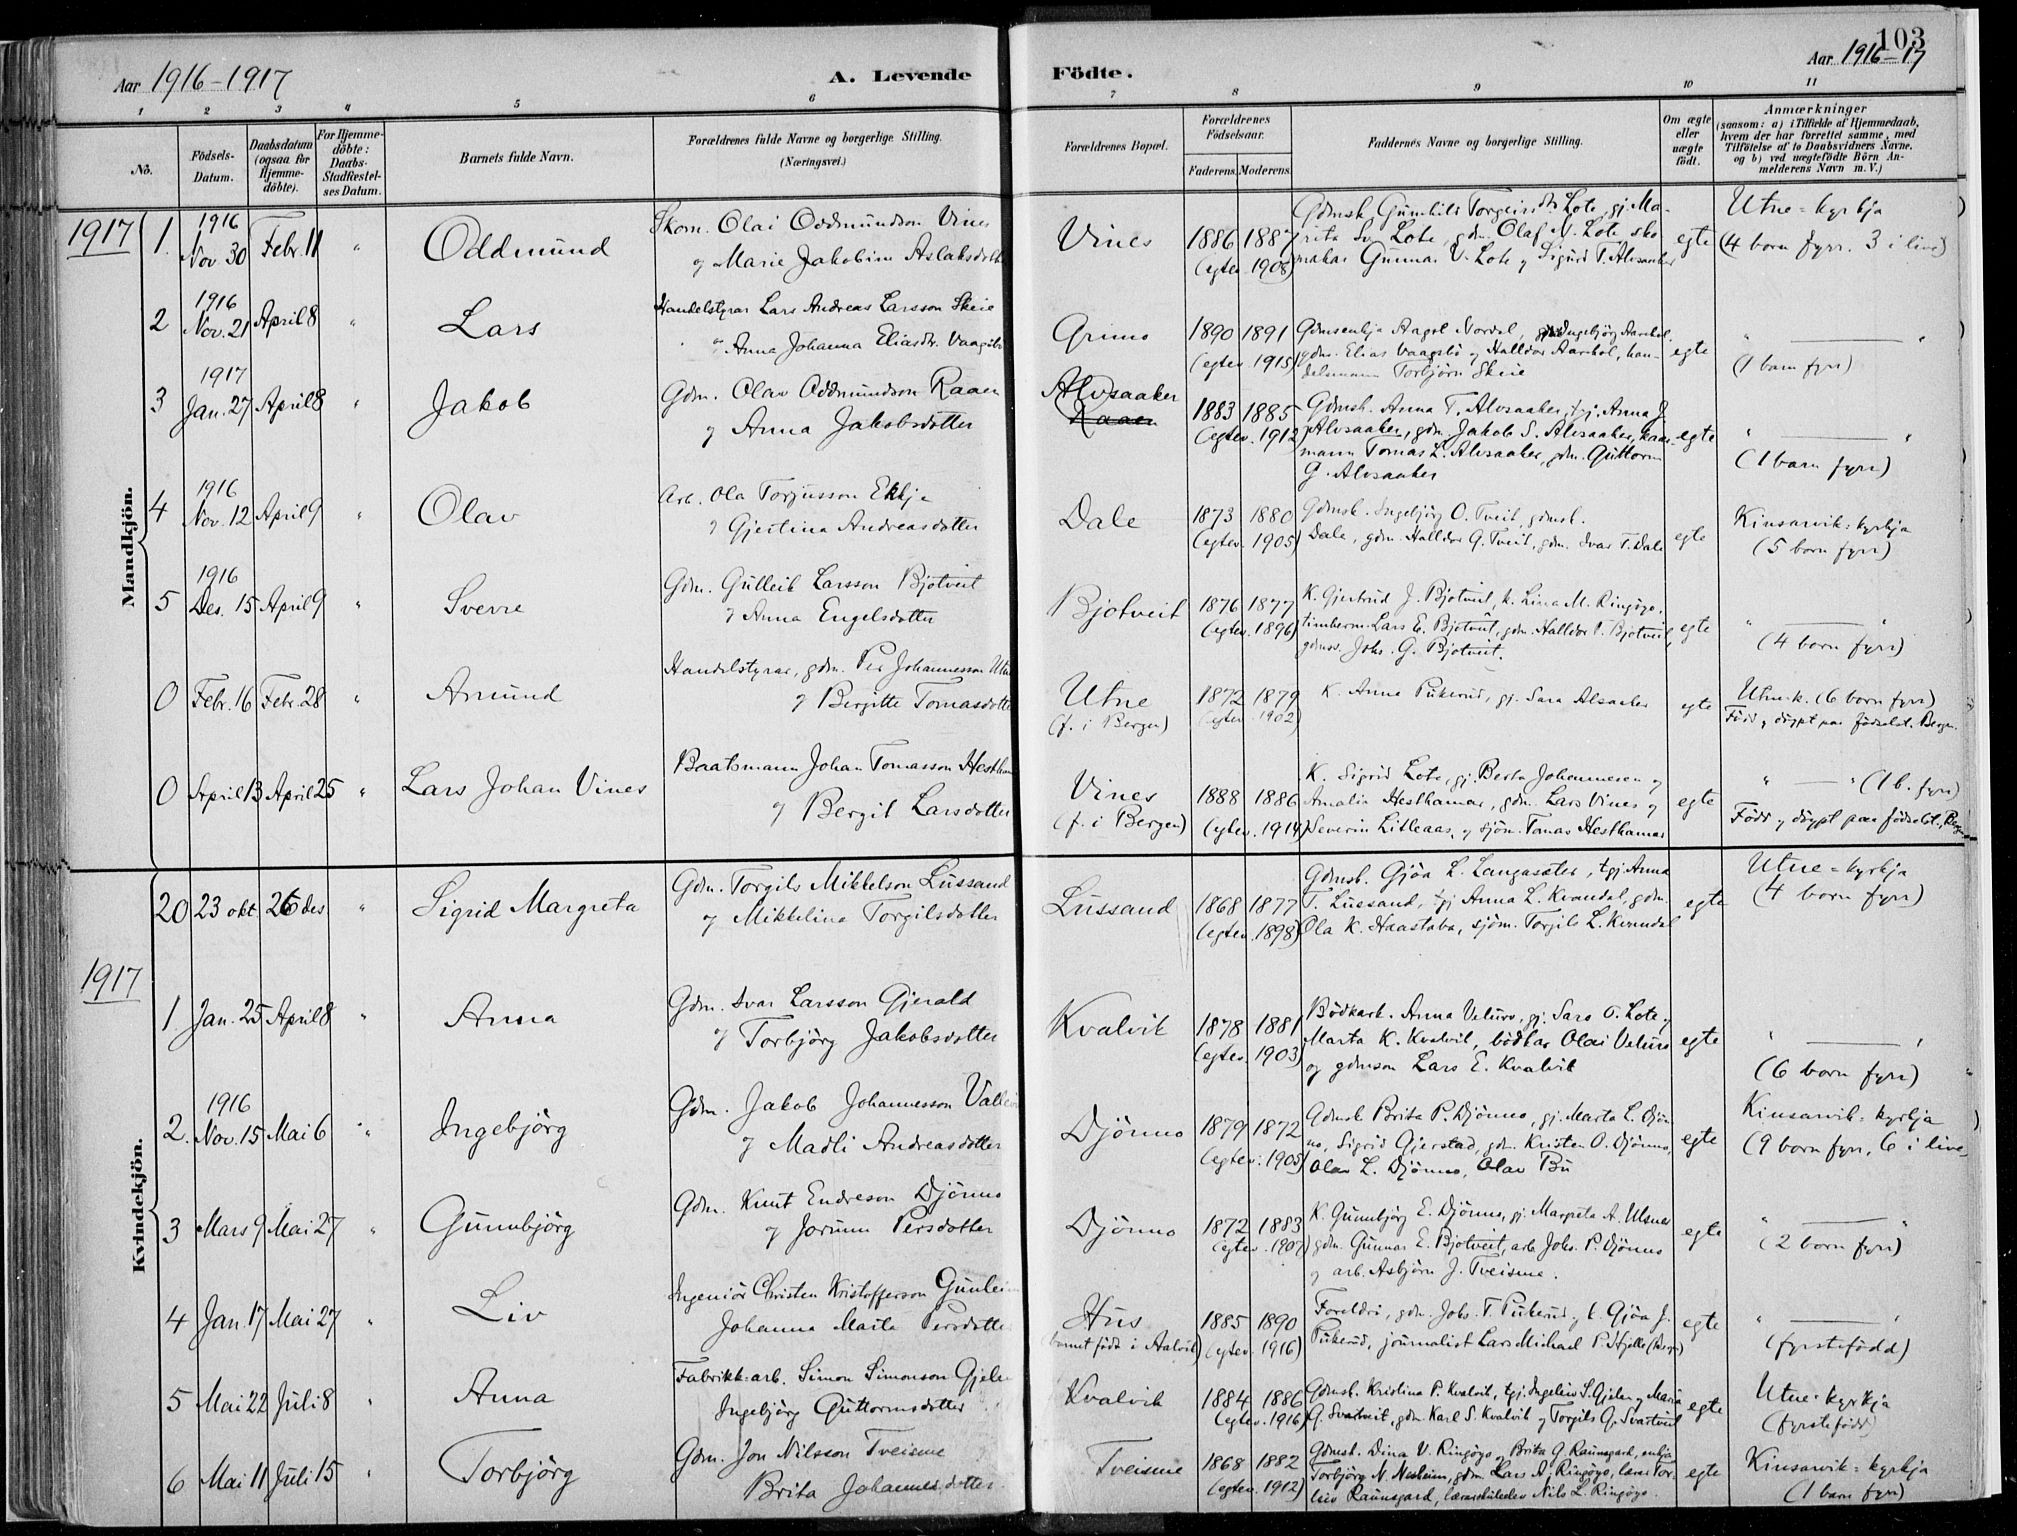 103
Aar 1916-1917
A. Levende
Födte.
Aar 1916-17
1 2 3 4 5 6 7 8 9 10 11
No.
Födsels-Datum.
Daabsdatum (ogsaa for Hjemme-döbte).
For Hjemme-döbte: Daabs-Stadfæstel-ses Datum.
Barnets fulde Navn.
Forældrenes fulde Navne og borgerlige Stilling.
(Næringsvei.)
Forældrenes Bopæl.
Forældrenes Födselsaar.
Faderens. Moderens.
Faddernes Navne og borgerlige Stilling.
Om ægte eller uægte födt.
Anmærkninger
(saasom: a) i Tilfælde af Hjemmedaab,
hvem der har forrettet samme, med
Tilföielse af to Daabsvidners Navne,
og b) ved uægtefödte Börn An-
melderens Navn m. V.)
Mandkjön.
1917
1. 1916 Nov. 30 Febr. 11 " Oddmund
Skom. Olai Oddmundson Vines
og Marie Jakobine Aslaksdotter
Vines 1886 1887 (egtev. 1908)
Gdmsk. Gunhild Torgeirsdtr. Lote, gj. Ma-
rita Sv. Lote, gdm. Olaf N. Lote, sko-
makar Gunnar V. Lote og Sigurd T. Alvsaaker
egte
Utne-kyrkja
(4 born fyrr. 3 i live)
2 1916 Nov. 21 April 8 " Lars
Handelstyrar Lars Andreas Larsson Skeie
og Anna Johanna Eliasdtr. Vaagsbö
Grimo 1890 1891 (egtev. 1915)
gdm. Elias Vaagsbö og Halldor Aarhol, han-
delsmann Torbjörn Skeie
egte
" "
(1 barn fyrr)
3 1917 Jan. 27 April 8 " Jakob
Gdm. Olav Oddmundson Raaen
og Anna Jakobsdotter
Alvsaaker
Raaen
1883 1885 (egtev. 1912)
Gdmsk. Anna T. Alvsaaker, tj. Anna J.
Alvsaaker, gdm. Jakob S. Alvsaaker, kaar-
mann Tomas L. Alvsaaker, gdm. Guttorm
G. Alvsaaker
egte
" "
(1 barn fyrr)
4 1916 Nov. 12 April 9 " Olav
Arb. Ola Torjusson Ekkje
og Gjertina Andreasdotter
Dale 1873 1880 (egtev. 1905)
Gdmsk. Ingebjörg O. Tveit, gdmsk.
Dale, gdm. Halldor G. Tveit, gdm. Ivar T. Dale
egte
Kinsarvik-kyrkja
(5 born fyrr)
5 1916 Des. 15 April 9 " Sverre
Gdm. Gulleik Larsson Bjotveit
og Anna Engelsdotter
Bjotveit 1876 1877 (egtev. 1896)
K. Gjertrud J. Bjotveit, k. Lina M. Ringöyo,
timberm. Lars E. Bjotveit, gdm. Halldor P. Bjotveit,
gdmsv. Johs. G. Bjotveit.
egte
" "
(4 born fyrr)
0 Febr. 16 Febr. 28 " Amund
Handelstyrar, gdm. Per Johannesson Utne
og Bergitte Tomasdotter
Utne
(f. i Bergen)
1872 1879 (egtev. 1902)
K. Anna Pukerud, gj. Sara Alsaaker
egte
Utne-k. (6 born fyrr)
Född og döypt paa födselst. Bergen.
0 April 13 April 25 " Lars Johan Vines
Baatsmann Johan Tomasson Hesthamar
og Bergit Larsdotter
Vines
(f. i Bergen)
1888 1886 (egtev. 1914)
K. Sigrid Lote, gj. Berta Johannesen og
Amalia Hesthamar, gdm. Lars Vines og
Severin Litleaas, og sjöm. Tomas Hesthamar
egte
" " (1 b. fyrr)
Född og döypt paa födselst., Bergen
Kvindekjön.
20 23 okt 26 des " Sigrid Margreta
Gdm. Torgils Mikkelson Lussand
og Mikkelina Torgilsdotter
Lussand 1868 1877 (egtev. 1898)
Gdmsk. Gjöa L. Langasæter, tgj. Anna
T. Lussand, tgj Anna L. Kvandal, gdm.
Ola K. Haastabø, sjöm. Torgils L. Kvandal
egte
Utne-kyrkja
(4 born fyrr)
1917
1. Jan. 25 April 8 " Anna
Gdm. Ivar Larsson Gjerald
og Torbjörg Jakobsdotter
Kvalvik 1878 1881 (egtev. 1903)
Bödkark. Anna Velure, gj. Sara O. Lote og
Marta K. Kvalvik, bödkar Olai Velure
og gdmson Lars E. Kvalvik
egte
" "
(6 born fyrr)
2. 1916 Nov. 15 Mai 6 " Ingebjörg
Gdm. Jakob Johannesson
og Madli Andreasdotter
Djönno 1879 1872 (egtev. 1905)
Gdmsk Brita P. Djönno, gj. Marta L. Djön-
no, Sigrid Gjerstad, gdm. Kristen O. Djönno,
Olav L. Djönno, Olav Bu
egte
Kinsarvik-kyrkja
(9 born fyrr, 6 i live)
3 Mars 9 Mai 27 " Gunnbjörg
Gdm. Knut Endreson Djönno
og Jorunn Persdotter
Djönno 1872 1883 (egtev. 1907)
K. Gunnbjörg E. Djönno, gj. Margreta A. Utsnes
gdm. Gunnar E. Bjotveit, arb. Johs. P. Djönno
og arb. Asbjörn J. Tveisme.
egte
" "
(2 born fyrr)
4 Jan. 17 Mai 27 " Liv
Ingeniör Christen Kristofferson
Johanna Marta Persdotter
Hus
(barnet född i Aalvik)
1885 1890 (egtev. 1916)
Foreldri, gdm. Johs. T. Pukerud, og k. Gjöa J.
Pukerud, journalist Lars Michael P. Hjelle (Bergen)
egte
" "
(fyrstefödd)
5 Mai 22 Juli 8 " Anna
Fabrikk-arb. Simon Simonson
Ingebjörg Guttormsdotter
Kvalvik 1884 1886 (egtev. 1916)
Gdmsk. Kristina P. Kvalvik, tgj. Ingeleiv S. Gjelen og Maria
G. Svartveit, gdm. Karl S. Kvalvik og Torgils G. Svartveit
egte
Utne-kyrkja
(fyrstefödd)
6 Mai 11 Juli 15 " Torbjörg
Gdm. Jon Nilsson Tveisme
Brita Johannesdotter
Tveisme 1868 1882 (egtev. 1912)
Gdmsk. Dina V. Ringöyo, Brita G. Raunsgard, enkja
Torbjörg N. Nesheim, gdm. Lars A. Ringöyo, lærar Tor-
leiv Raunsgard, læraskuleelev Nils L. Ringöyo.
egte
Kinsarvik-kyrkja
(1 barn fyrr)